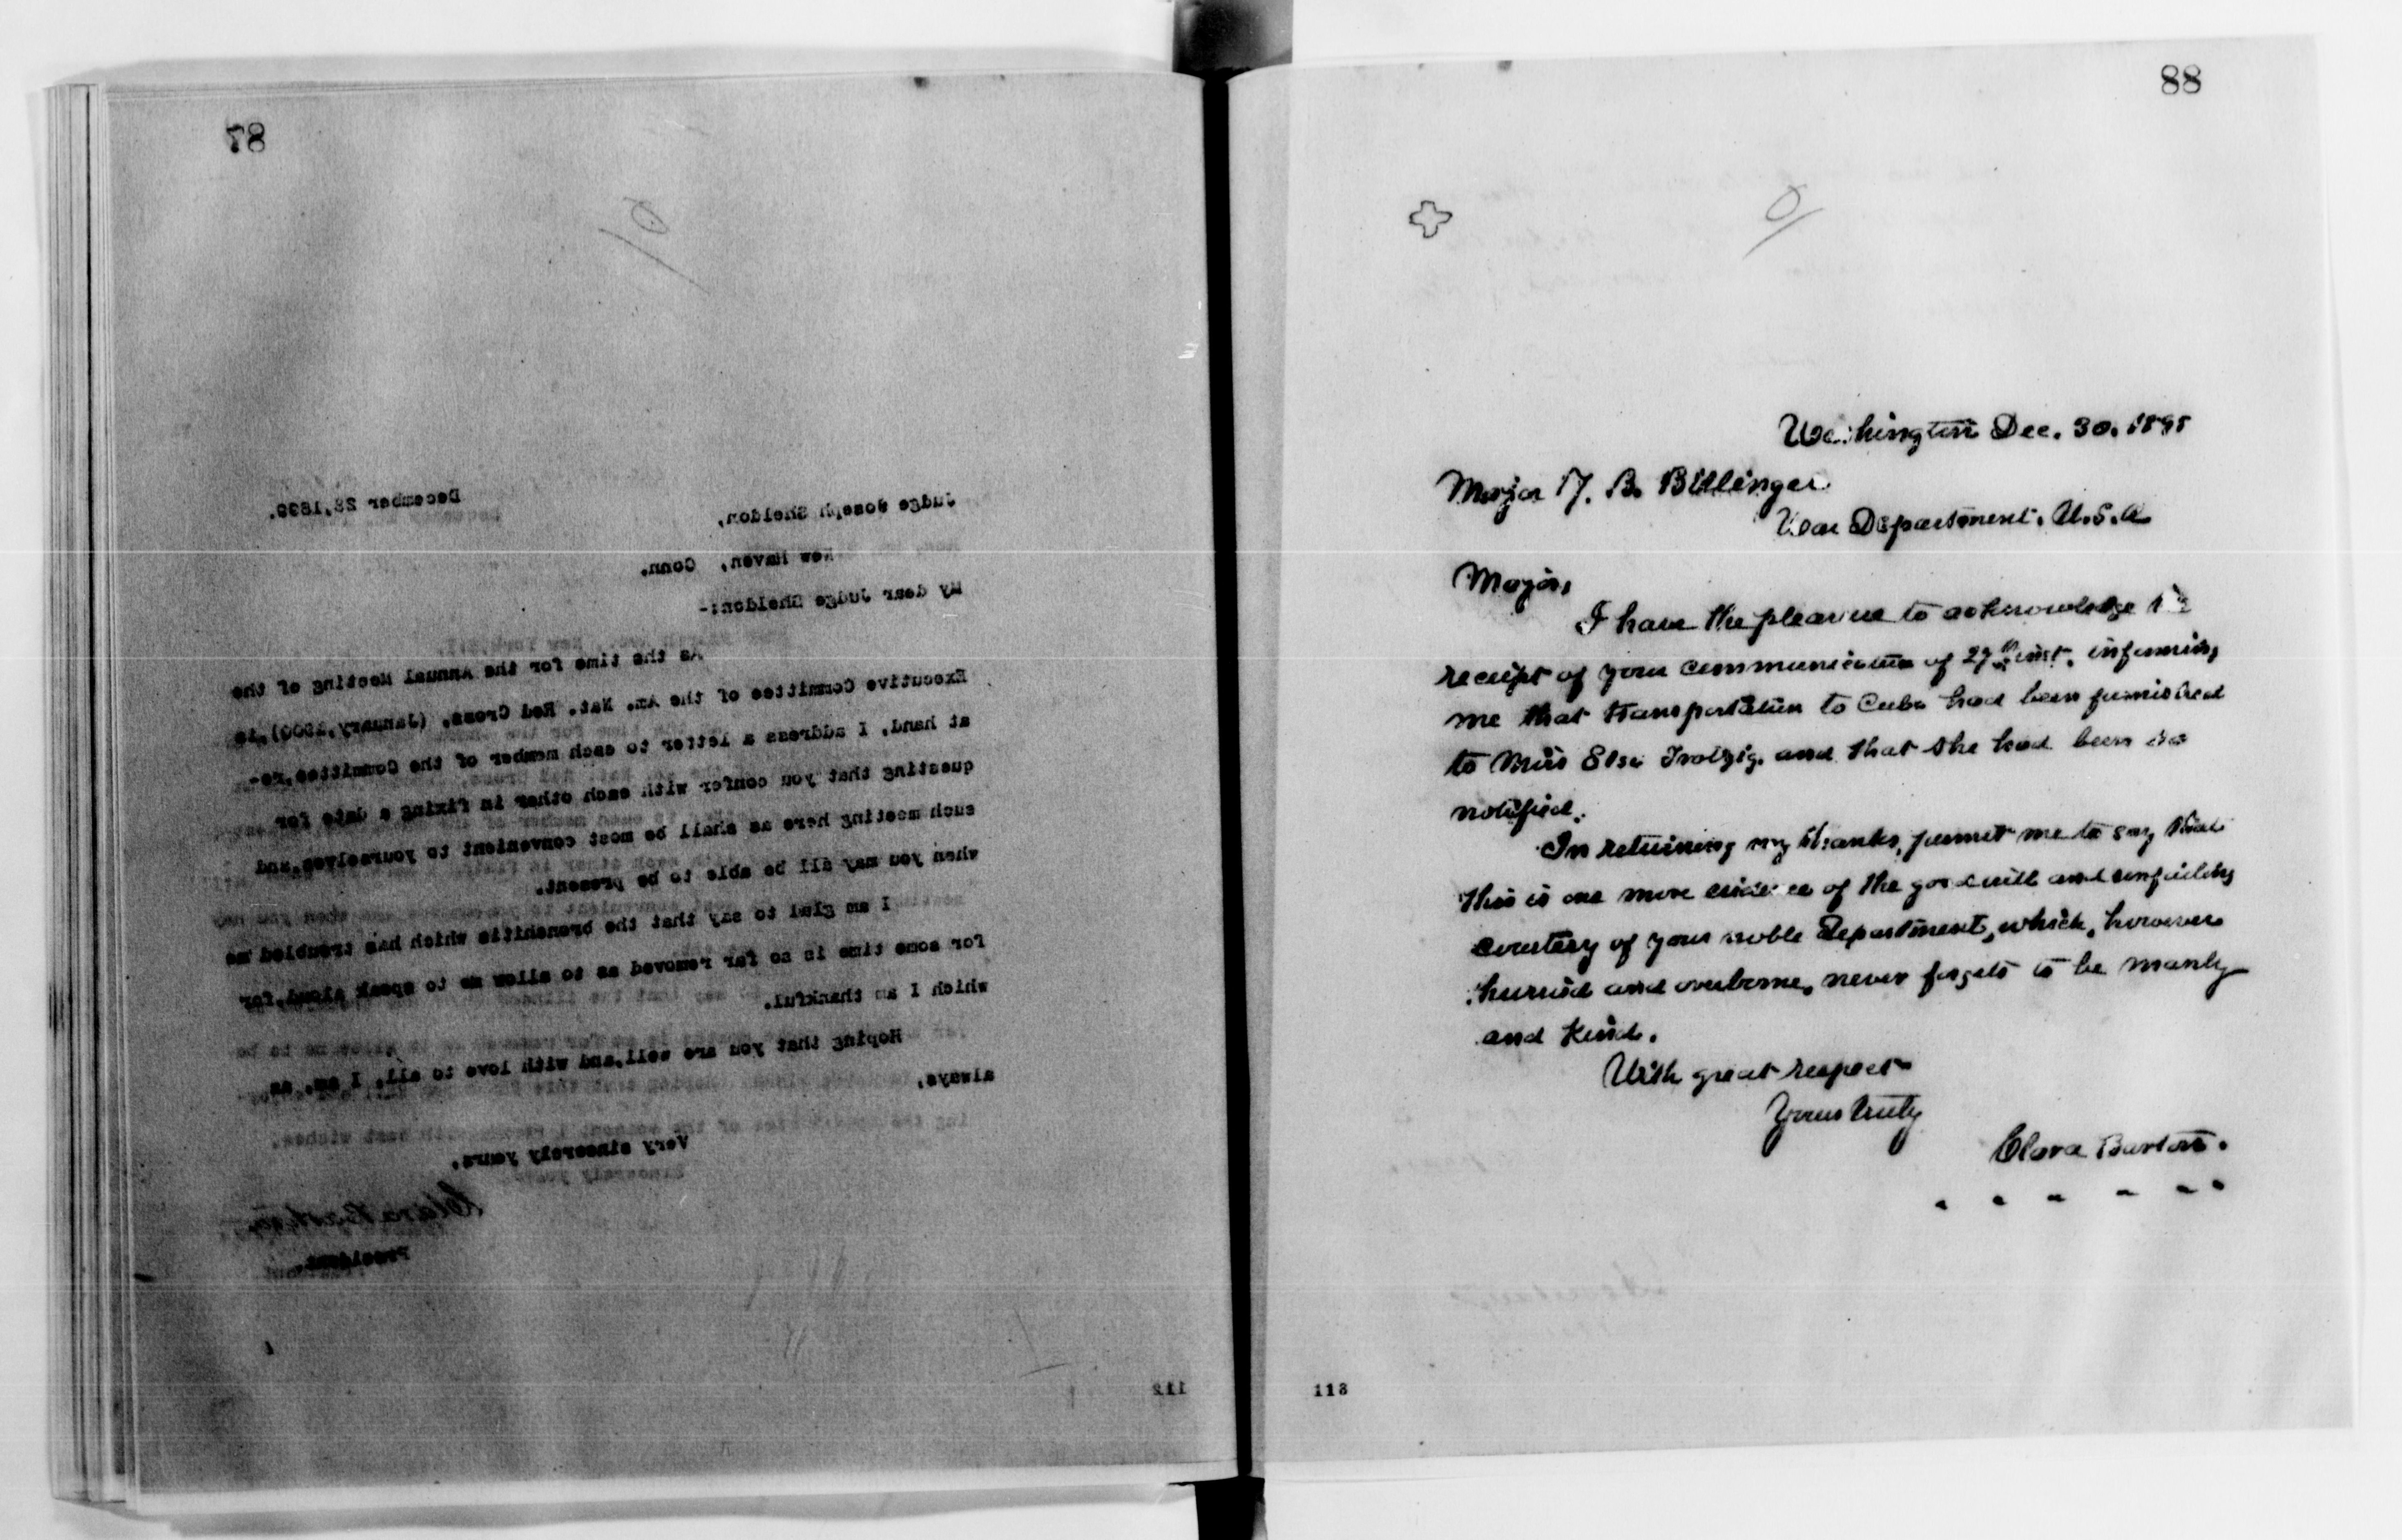 87
December 28,1899.
Judge Joseph Sheldon,
New Haven, Conn.
My dear Judge Sheldon:-
As the time for the Annual Meeting of the
Executive Committee of the Am. Nat. Red Cross, (January,1900),is
at hand, I address a letter to each member of the Committee,re-
questing that you confer with each other in fixing a date for
such meeting here as shall be most convenient to yourselves,and
when you may all be able to be present.
I am glad to say that the bronchitis which has troubled me
for some time is so far removed as to allow me to speak aloud,for
which I am thankful.
Hoping that you are well,and with love to all, I am, as
always,
Very sincerely yours,
Clara Barton
President.
112
88
Washington Dec. 30. 189
Major B. Billinger
War Department. U.S.A
Major,
I have the pleasure to acknowledge the
receipt of your communication of 29th inst. informing
me that transportation to Cuba had been furnished
to Miss and that she had been so
notified.
In returning my thanks, permit me to say that
this is one more evidence of the good will and unfailing
courtesy of your noble Department, which, however
hurried and overborne, never forgets to be manly
and kind.
With great respect
Yours truly
Clara Barton.
113